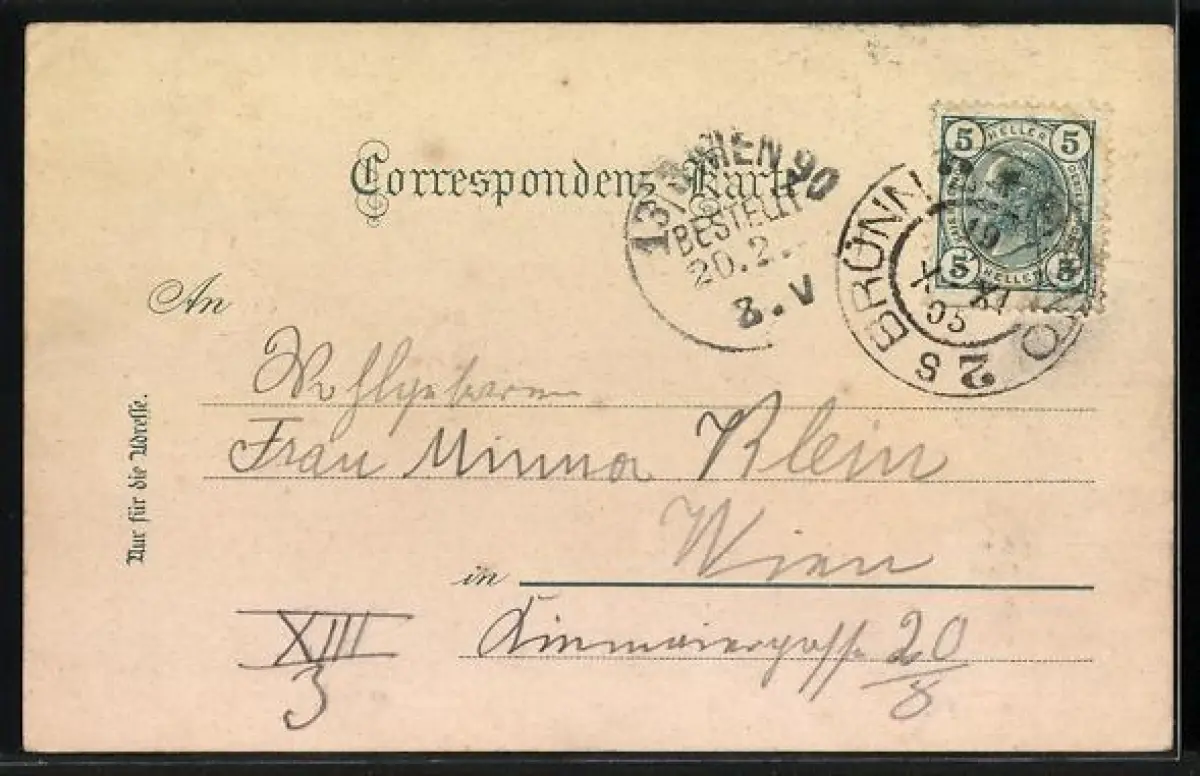 Correspondenz-Karte
13/8 WIEN 90
BESTELLT
20.2.
8.V
BRÜNN
19
XI
03
2 S BRNO
5 HELLER 5
5 HELLER 5
An
Wohlgeboren
Frau Minna Klein
Wien
in
XIII
3
Linzmaiergasse 20/8
Nur für die Adresse.